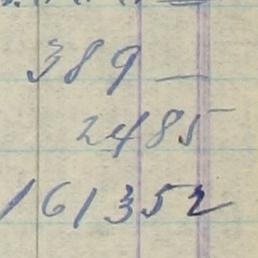 389 —
2485
161352